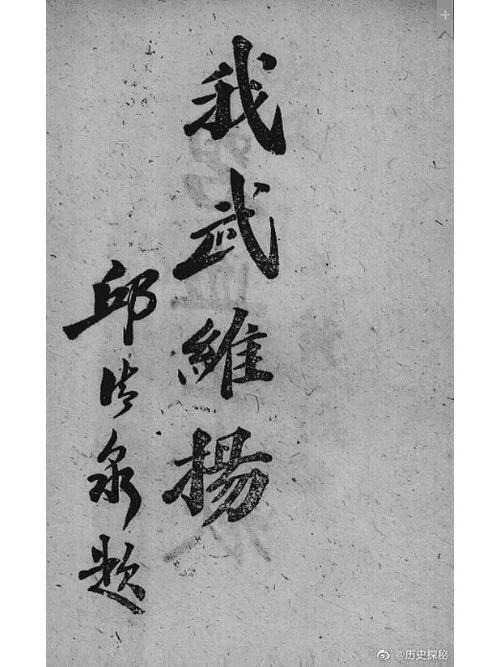 我武維揚
邱清泉題
@历史探秘